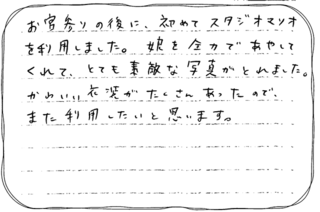 お宮参りの後に、初めてスタジオマリオ
を利用しました。娘を全力であやして
くれて、とても素敵な写真がとれました。
かわいい衣裳がたくさんあったので、
また利用したいと思います。